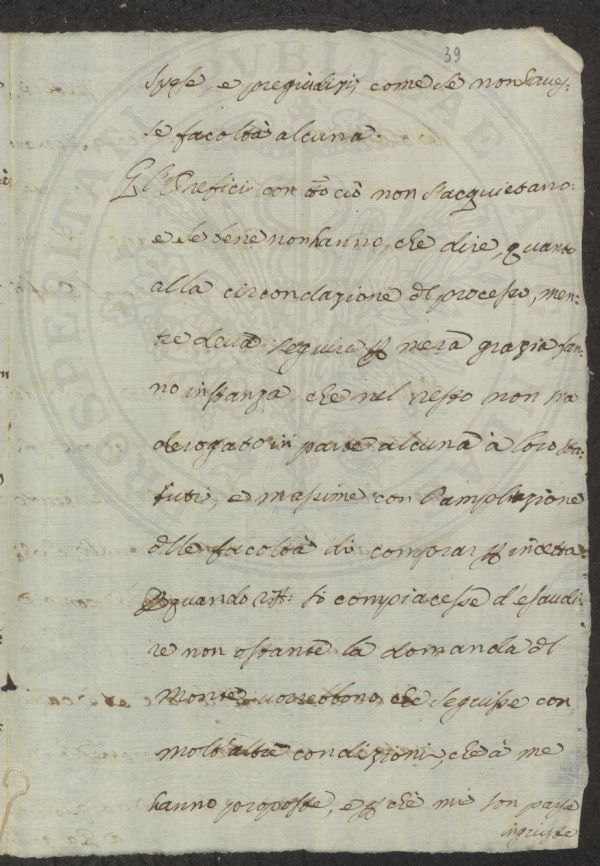 39
spese, e pregiudizij come se non haues-
se facoltà alcuna.
Gl'Orefici con tto ciò non s'acquietano.
e se bene non hanno che dire, quanto
alla circondazione del processo, men-
tre deuà seguire p mera grazia fan-
no instanza, che nel resto non sia
derogato in parte alcuna à loro sta-
tuti, e massime con l'ampliazione
dlle facoltà di comprar p incetta
quando si compiacesse d'esaudi-
re non ostante la domanda del
Monte uorrebbono che seguisse con
molt'altre condizioni, che à me
hanno proposte, e p che mi son parse
ingiuste
PVBLICAE
PROSPERITATI